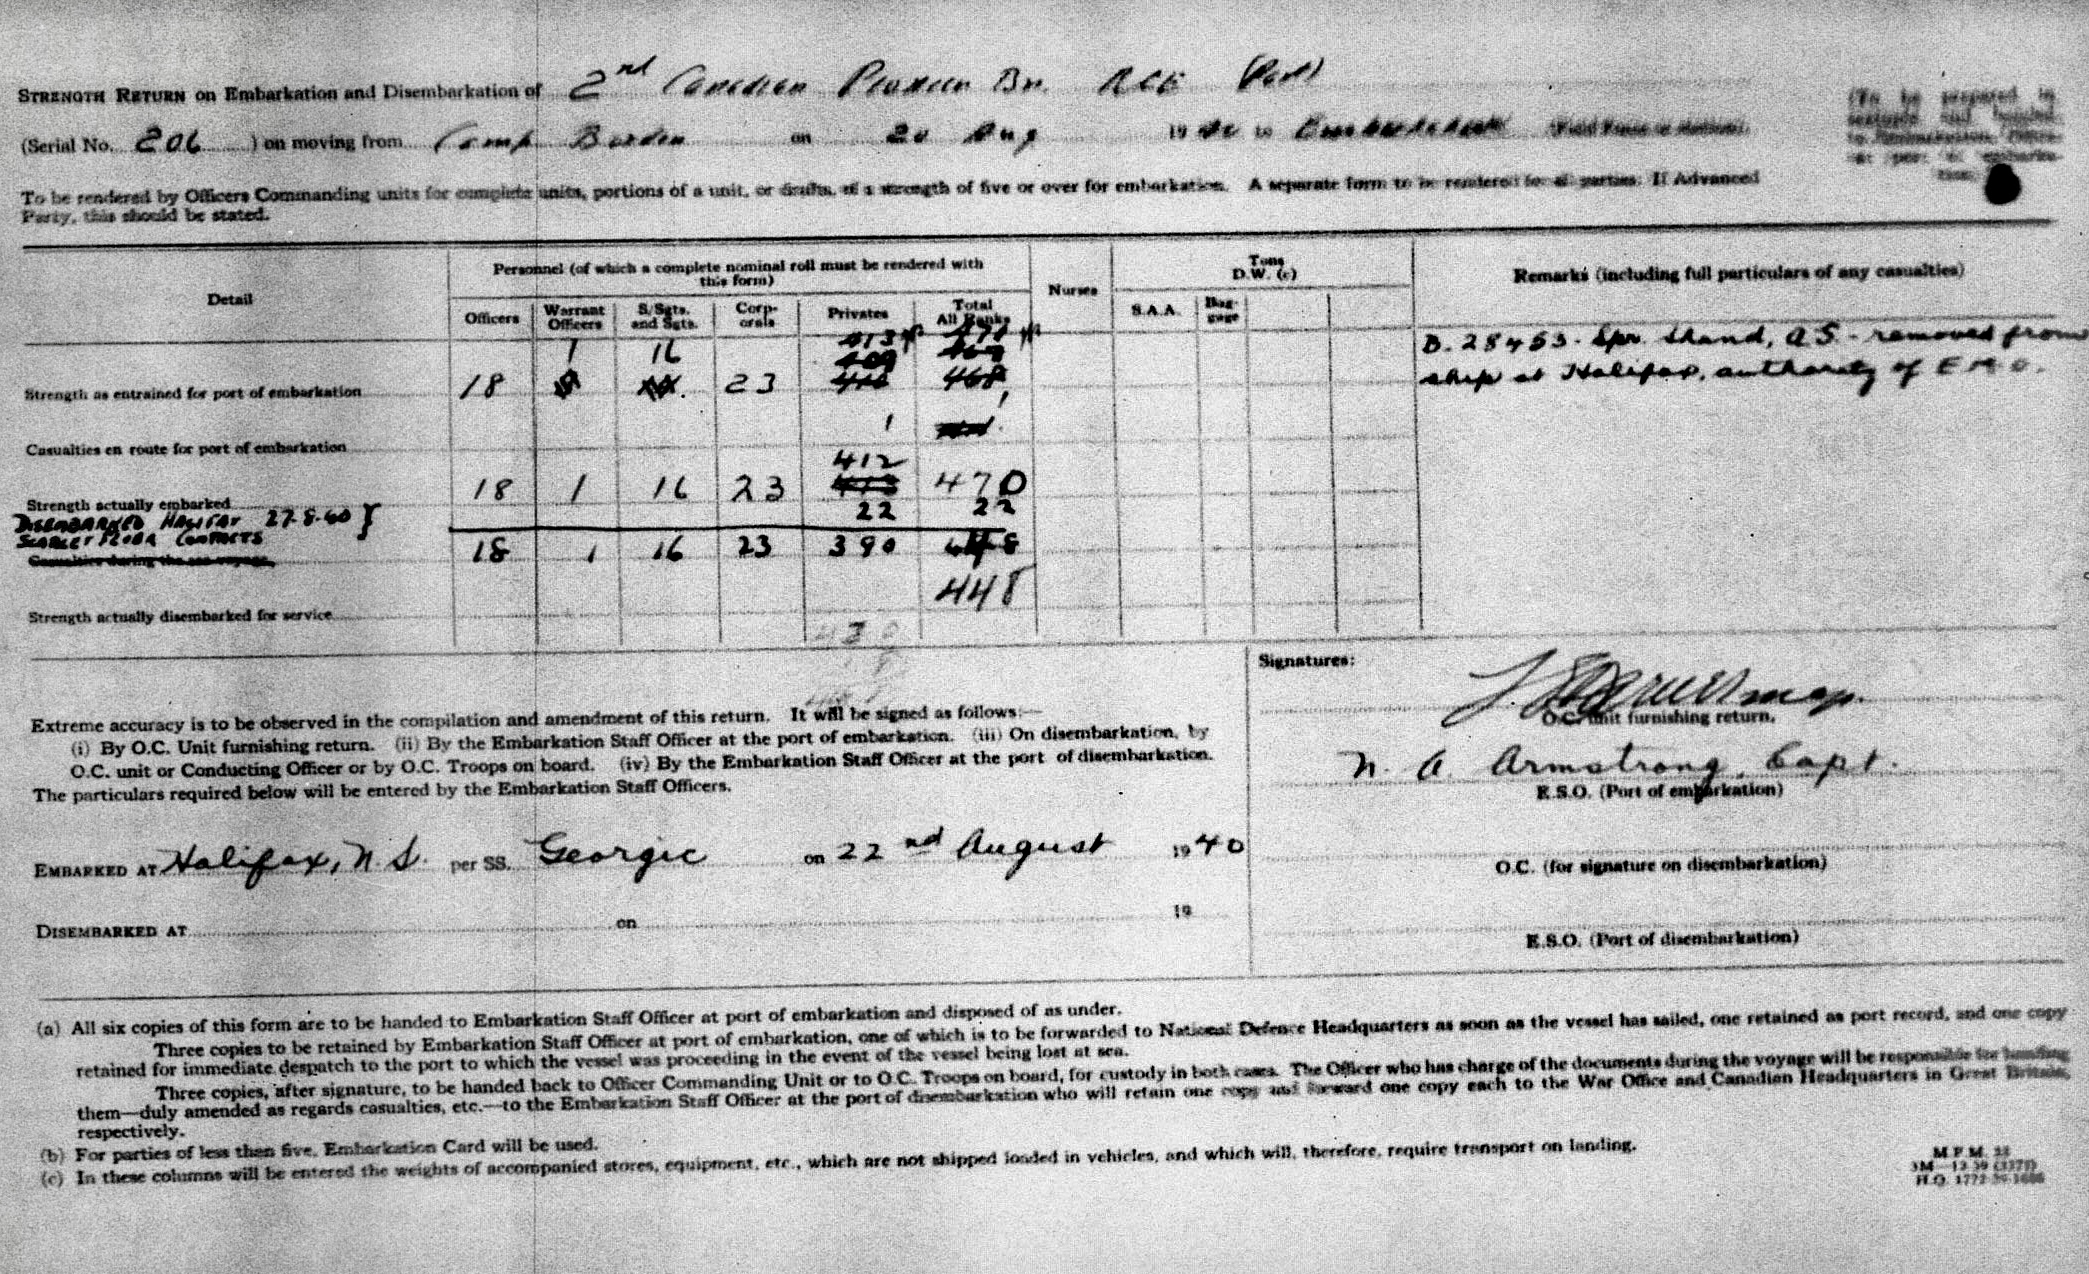 STRENGTH RETURN on Embarkation and Disembarkation of 2nd Canadian Pioneer Bn. RCE (Part)
(Serial No. 206 ) on moving from Camp Borden on 20 Aug 1940 to
(To be prepared in
To be rendered by Officers Commanding units for complete units, portions of a unit, or drafts, of a strength of five or over for embarkation. A separate form to be rendered for all parties. If Advanced
Party, this should be stated.
Detail
Personnel (of which a complete nominal roll must be rendered with
this form)
Officers
Warrant
Officers
S/Sgts.
and Sgts.
Corp-
orals
Privates
Total
All Ranks
Nurses
Tons
D.W. (c)
S.A.A.
Bag-
gage
Remarks (including full particulars of any casualties)
413 471
1 16 409
Strength as entrained for port of embarkation 18 23 468
B. 28453 - Spr. Shand, A.S. - removed from
ship at Halifax, authority of E.M.O.
Casualties en route for port of embarkation 1 1
412
Strength actually embarked 18 1 16 23 413 470
DISEMBARKED HALIFAX 27-8-40 } 22 22
SCARLET FEVER CONTACTS
Casualties during the sea voyage 18 1 16 23 390 448
448
Strength actually disembarked for service
Extreme accuracy is to be observed in the compilation and amendment of this return. It will be signed as follows:—
(i) By O.C. Unit furnishing return. (ii) By the Embarkation Staff Officer at the port of embarkation. (iii) On disembarkation, by
O.C. unit or Conducting Officer or by O.C. Troops on board. (iv) By the Embarkation Staff Officer at the port of disembarkation.
The particulars required below will be entered by the Embarkation Staff Officers.
EMBARKED AT Halifax, N.S. per SS. Georgic on 22nd August 1940
DISEMBARKED AT on 19
Signatures:
O.C. unit furnishing return.
N. A. Armstrong, Capt.
E.S.O. (Port of embarkation)
O.C. (for signature on disembarkation)
E.S.O. (Port of disembarkation)
(a) All six copies of this form are to be handed to Embarkation Staff Officer at port of embarkation and disposed of as under.
Three copies to be retained by Embarkation Staff Officer at port of embarkation, one of which is to be forwarded to National Defence Headquarters as soon as the vessel has sailed, one retained as port record, and one copy
retained for immediate despatch to the port to which the vessel was proceeding in the event of the vessel being lost at sea.
Three copies, after signature, to be handed back to Officer Commanding Unit or to O.C. Troops on board, for custody in both cases. The Officer who has charge of the documents during the voyage will be responsible for handing
them—duly amended as regards casualties, etc.—to the Embarkation Staff Officer at the port of disembarkation who will retain one copy and forward one copy each to the War Office and Canadian Headquarters in Great Britain,
respectively.
(b) For parties of less than five, Embarkation Card will be used.
(c) In these columns will be entered the weights of accompanied stores, equipment, etc., which are not shipped loaded in vehicles, and which will, therefore, require transport on landing.
M.F.M. 23
H.Q. 1772-39-1686